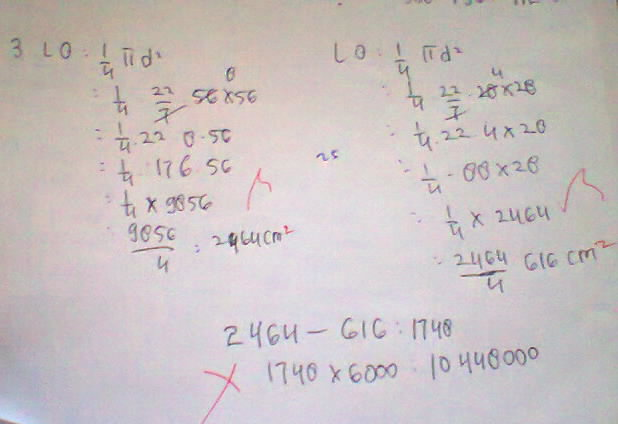 3 LO : 1/4 πd²
: 1/4 22/7 56 × 56 8
= 1/4 . 22 8 . 56
= 1/4 . 176 . 56
: 1/4 × 9856
: 9856/4 : 2464 cm²
25
LO : 1/4 πd²
: 1/4 22/7 . 28 × 28 4
= 1/4 . 22 4 × 28
: 1/4 . 88 × 28
: 1/4 × 2464
: 2464/4 616 cm²
2464 – 616 : 1748
1748 × 6000 : 10448000